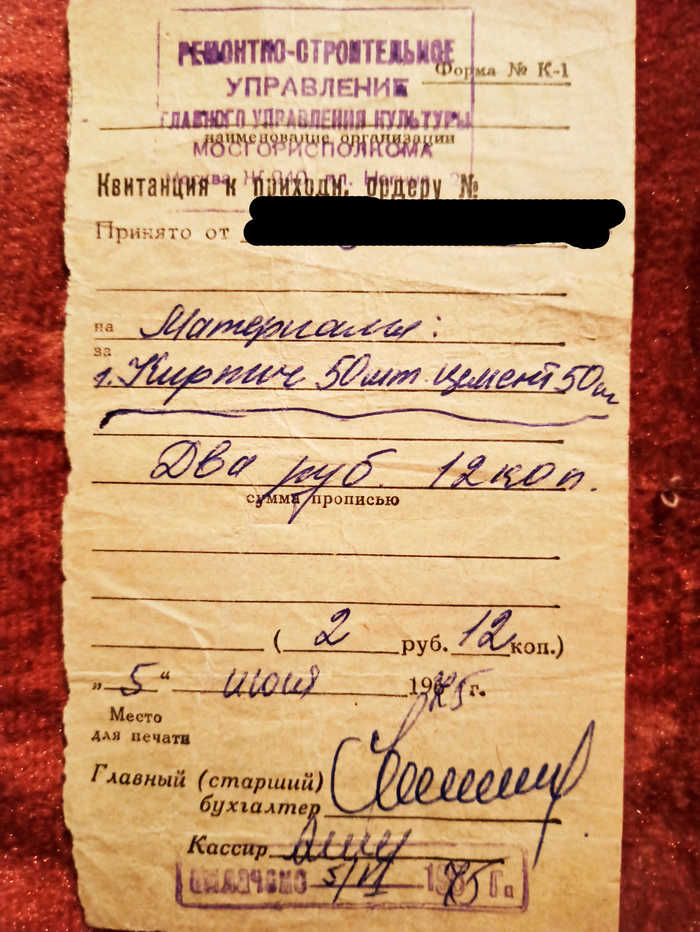 РЕМОНТНО-СТРОИТЕЛЬНОЕ
Форма № К-1
УПРАВЛЕНИЕ
ГЛАВНОГО УПРАВЛЕНИЯ КУЛЬТУРЫ
наименование организации
МОСГОРИСПОЛКОМА
Москва
Квитанция к приходн. ордеру №
Принято от
на Материалы:
за
Кирпич 50шт. цемент 50кг
Два руб. 12 коп.
сумма прописью
( 2 руб. 12 коп.)
„ 5 “ июня 1975 г.
Место
для печати
Главный (старший)
бухгалтер
Кассир
5/VI 1975 г.